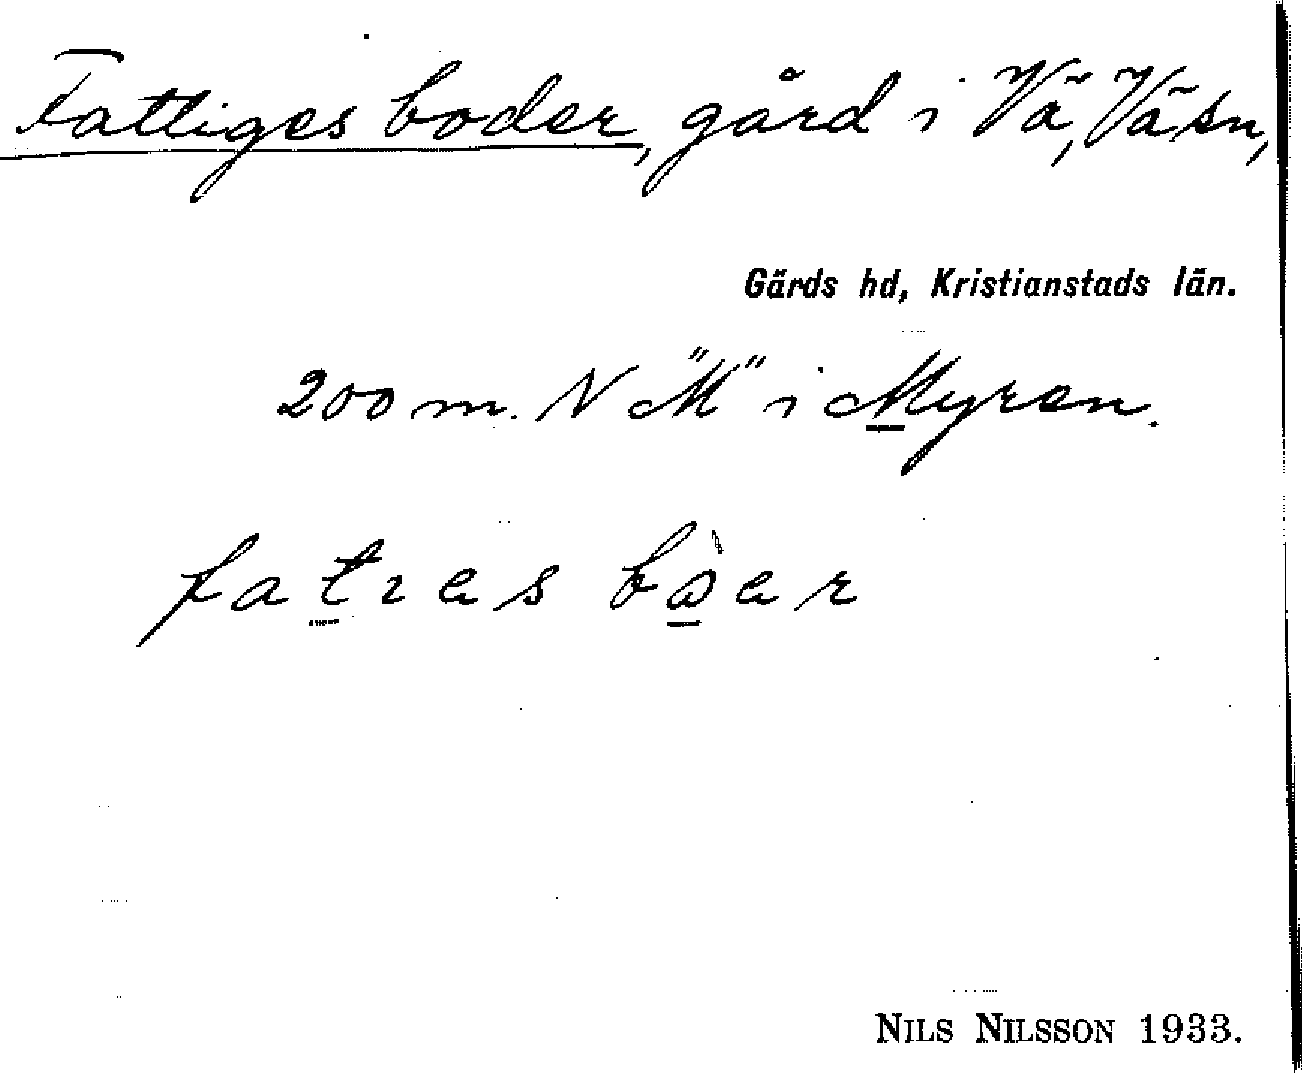 Fattiges boder, gård i Vä, Vä sn,
Gärds hd, Kristianstads län.
200 m. N "M" i Myren.
fatıes bòer
NILS NILSSON 1933.